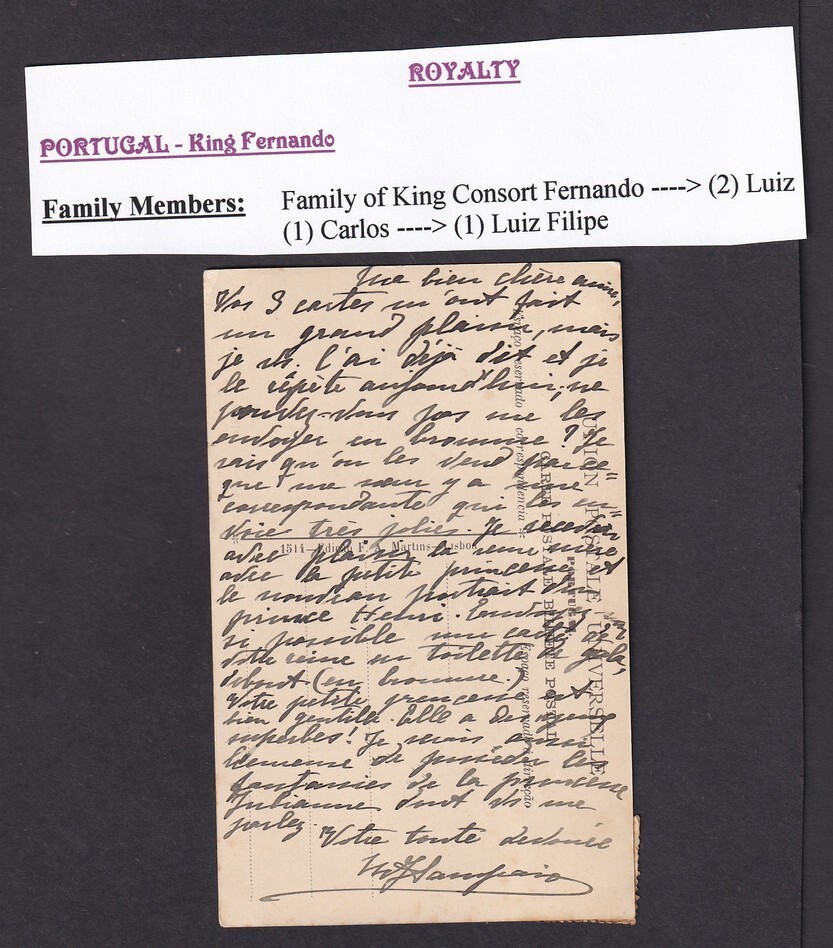 ROYALTY
PORTUGAL - King Fernando
Family Members: Family of King Consort Fernando ----> (2) Luiz
(1) Carlos ----> (1) Luiz Filipe
Ma bien chère amie,
Vos 3 cartes m'ont fait
un grand plaisir, mais
je vs. l'ai déjà dit et je
le répète aujourd'hui, ne
pouvez-vous pas me les
envoyer en bromure? Je
sais qu'on les vend parce
que ma sœur y a une
correspondante qui les en-
voie très jolies. Je recevrai
avec plaisir la reine mère
avec la petite princesse et
le nouveau portrait du
prince Henri
si possible une carte de
votre reine en toilette de gala,
debout (en bromure.)
Votre petite princesse est
bien gentille. Elle a des yeux
superbes! Je serais aussi
heureuse de posséder les
fantaisies de la princesse
Julianne dont vs me
parlez
Votre toute dévouée
Sampaio
UNION POSTALE UNIVERSELLE
PORTUGAL
CARTE POSTALE BILHETE POSTAL
Espaço reservado correspondencia
Espaço reservado á direcção
1514—Edição F. A. Martins—Lisboa